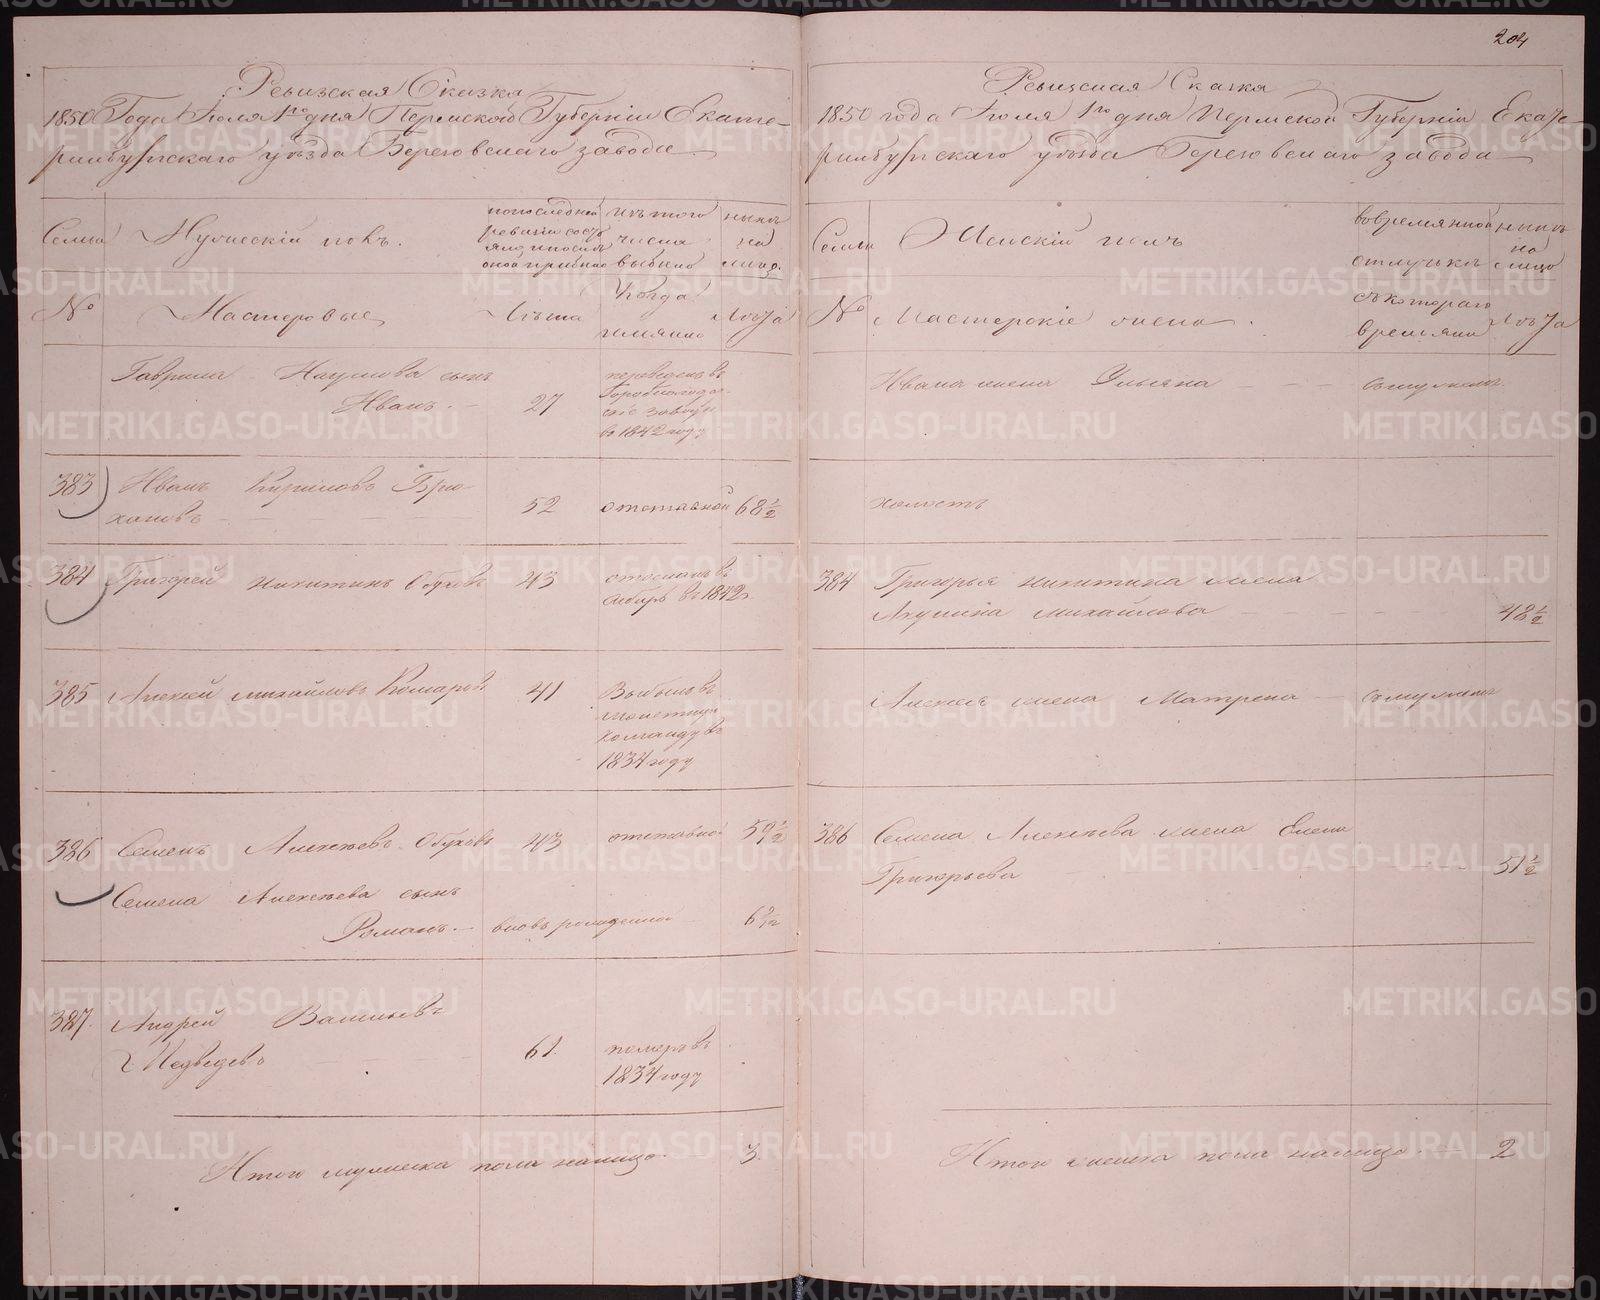 204
Ревизская Сказка
1850 Года Июля 1го дня Пермской Губерніи Екате-
ринбургскаго уѣзда Березовскаго завода
Семьи
Мужескій полъ.
по последней
ревизіи состо
яло и после
оной прибыло
изъ того
числа
выбыло
нынѣ
на
лицо
№
Мастеровые
Лѣта
Когда
именно
Лѣта
Гаврила Наумова сынъ
Иванъ. -
27
переведенъ въ
заводъ
въ 1842 году
383
Иванъ Кириловъ Брю-
хановъ
52
отставной
68 1/2
384
Григорей Никитинъ Обуховъ
43
отосланъ въ
Сибирь въ 1842 г.
385
Алексей Михайловъ Комаровъ
41
Выбылъ въ
команду въ
1834 году
386
Семенъ Алексѣевъ Обуховъ
43
отставной
59 1/2
Семена Алексѣева сынъ
Романъ. -
вновь рожденной
387.
Андрей Васильевъ
Медведевъ
61
померъ въ
1834 году
Итого мужеска пола налицо.
3.
Ревизская Сказка
1850 года Июля 1го дня Пермской Губерніи Екате-
ринбургскаго уѣзда Березовскаго завода
Семьи
Женскій полъ
во временной
отлучькѣ
нынѣ
на
лицо
№
Мастерскіе жены.
съ котораго
времяни
Лѣта
Ивана жена Ульяна - - -
съ мужемъ
холостъ
384
Григорья Никитина жена
Акулина Михайлова
48 1/2
Алексея жена Матрена -
съ мужемъ
386
Семена Алексѣева жена Елена
Григорьева
51 1/2
Итого женска пола налицо.
2
METRIKI.GASO-URAL.RU